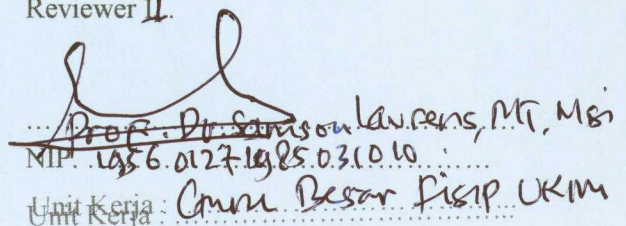 Reviewer II.
Prof. Dr. Samson Laurens, MT, Msi
NIP. 1956 0127 1985.031010
Unit Kerja : Guru Besar Fisip UKIM